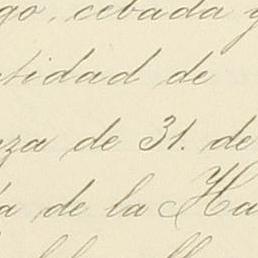 go, cebada y
ntidad de
nza de 31. de
a de la Ha